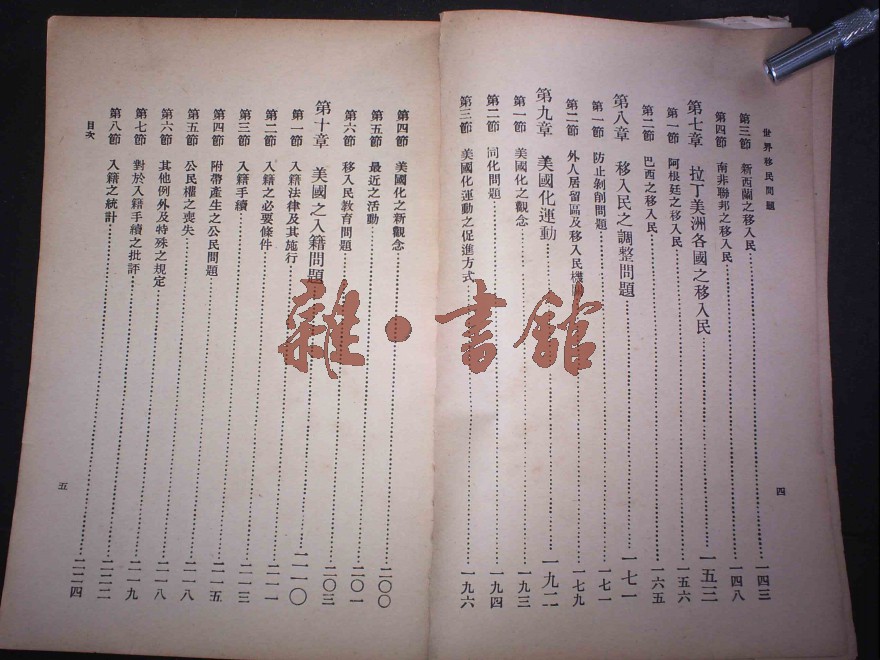 世界移民問題
第三節 新西蘭之移入民……一四三
第四節 南非聯邦之移入民……一四八
第七章 拉丁美洲各國之移入民……一五三
第一節 阿根廷之移入民……一五六
第二節 巴西之移入民……一六五
第八章 移入民之調整問題……一七一
第一節 防止剝削問題……一七一
第二節 外人居留區及移入民機……一七九
第九章 美國化運動……一九二
第一節 美國化之觀念……一九三
第二節 同化問題……一九四
第三節 美國化運動之促進方式……一九六
四
第四節 美國化之新觀念……二〇〇
第五節 最近之活動……二〇一
第六節 移入民教育問題……二〇三
第十章 美國之入籍問題……二一〇
第一節 入籍法律及其施行……二一一
第二節 入籍之必要條件……二一三
第三節 入籍手續……二一五
第四節 附帶產生之公民問題……二一八
第五節 公民權之喪失……二一八
第六節 其他例外及特殊之規定……二一九
第七節 對於入籍手續之批評……二二二
第八節 入籍之統計……二二四
目次
五
雜·書館